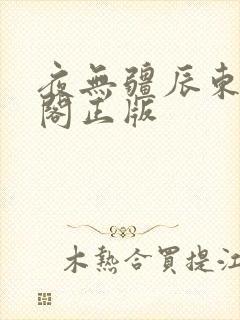 夜無疆辰東
閣正版
木熱合買提江